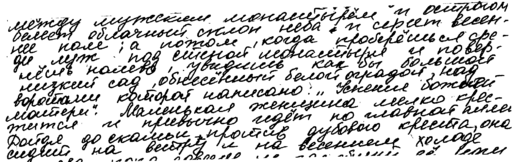 между мужским монастырём и острогом
белеет облачный склон неба и сереет весен-
нее поле; а потом, когда проберёшься сре-
ди луж под стеной монастыря и повер-
нёшь налево, увидишь как бы большой
низкий сад, обнесённый белой оградой, над
воротами которой написано: „Успение божией
матери". Маленькая женщина мелко крес-
тится и привычно идёт по главной аллее.
Дойдя до скамьи против дубового креста, она
сидит на ветру и на весеннем холоде